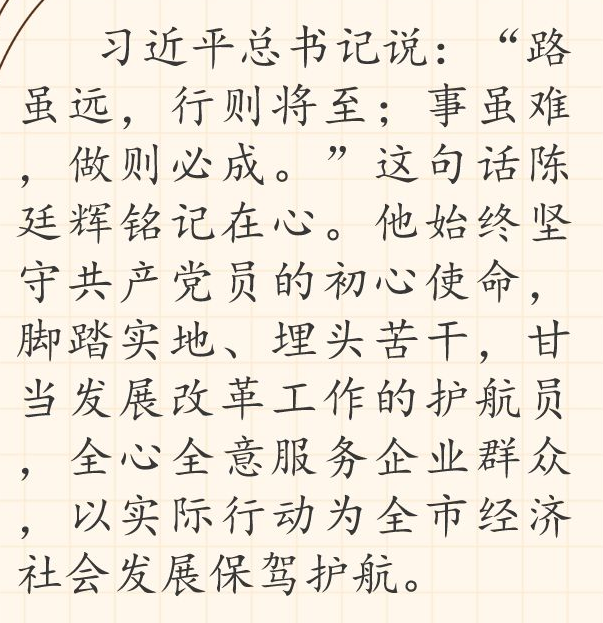 习近平总书记说：“路
虽远，行则将至；事虽难
，做则必成。”这句话陈
廷辉铭记在心。他始终坚
守共产党员的初心使命，
脚踏实地、埋头苦干，甘
当发展改革工作的护航员
，全心全意服务企业群众
，以实际行动为全市经济
社会发展保驾护航。